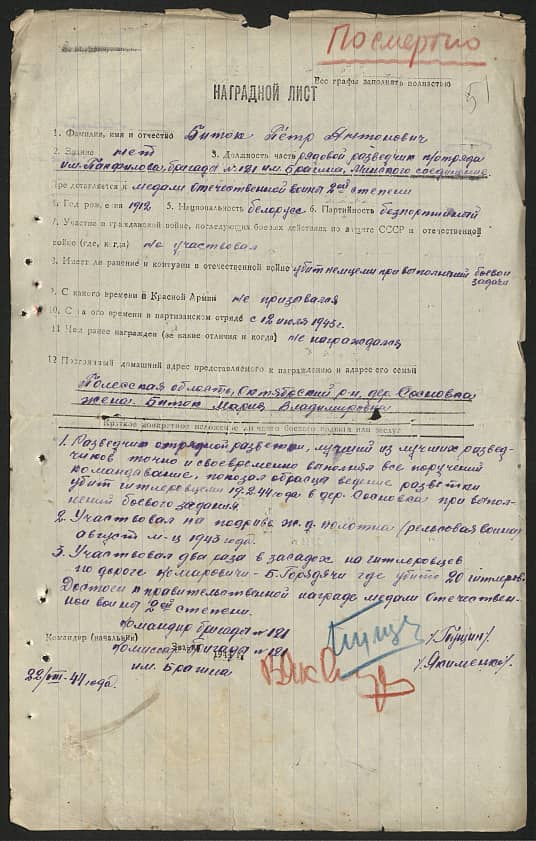 Посмертно
Все графы заполнять полностью
НАГРАДНОЙ ЛИСТ
1. Фамилия, имя и отчество Биток Пётр Антонович
2. Звание нет 3. Должность часть рядовой разведчик п/отряда
им. Панфилова, бригада № 121 им. Брагина, Минского соединения
Представляется к медали отечественной войны 2ой степени
4. Год рождения 1912 5. Национальность белорусс 6. Партийность безпортийный
7. Участие в гражданской войне, последующих боевых действиях по защите СССР и отечественной
войне (где, когда) не участвовал
8. Имеет ли ранение и контузии в отечественной войне убит немцами при выполнений боевой
задачи
9. С какого времени в Красной Армии не призовался
10. С какого времени в партизанском отряде с 12 июля 1943 г.
11. Чем ранее награжден (за какие отличия и когда) не награждался
12. Постоянный домашний адрес представляемого к награждению и адрес его семьи
Полесская область, Октябрский р-н, дер. Сосновка
жена: Биток Мария Владимировна
Краткое конкретное изложение личного боевого подвига или заслуг
1. Разведчик отрядной разветки, лучший из лучших развед-
чиков точно и своевременно выполнял все поручений
командование, показал образца ведение разветки
убит гитлеровцами 19.2.44 года в дер. Сосновка при выпол-
нений боевого задания.
2. Участвовал на подрыве ж.д. полотна (рельсовая война)
август м-ц 1943 года.
3. Участвовал два раза в засадах на гитлеровцев
по дороге Комаровичи - Б. Горядичи где убито 20 гитлеров.
Достоен к правительственной награде медали Отечествен-
ной войны 2ой степени.
Командир бригады № 121
Командир (начальник) /Пущин/
Комиссар бригады № 121
194 г.
/Якименко/
им. Брагина
22/VIII-44 года.